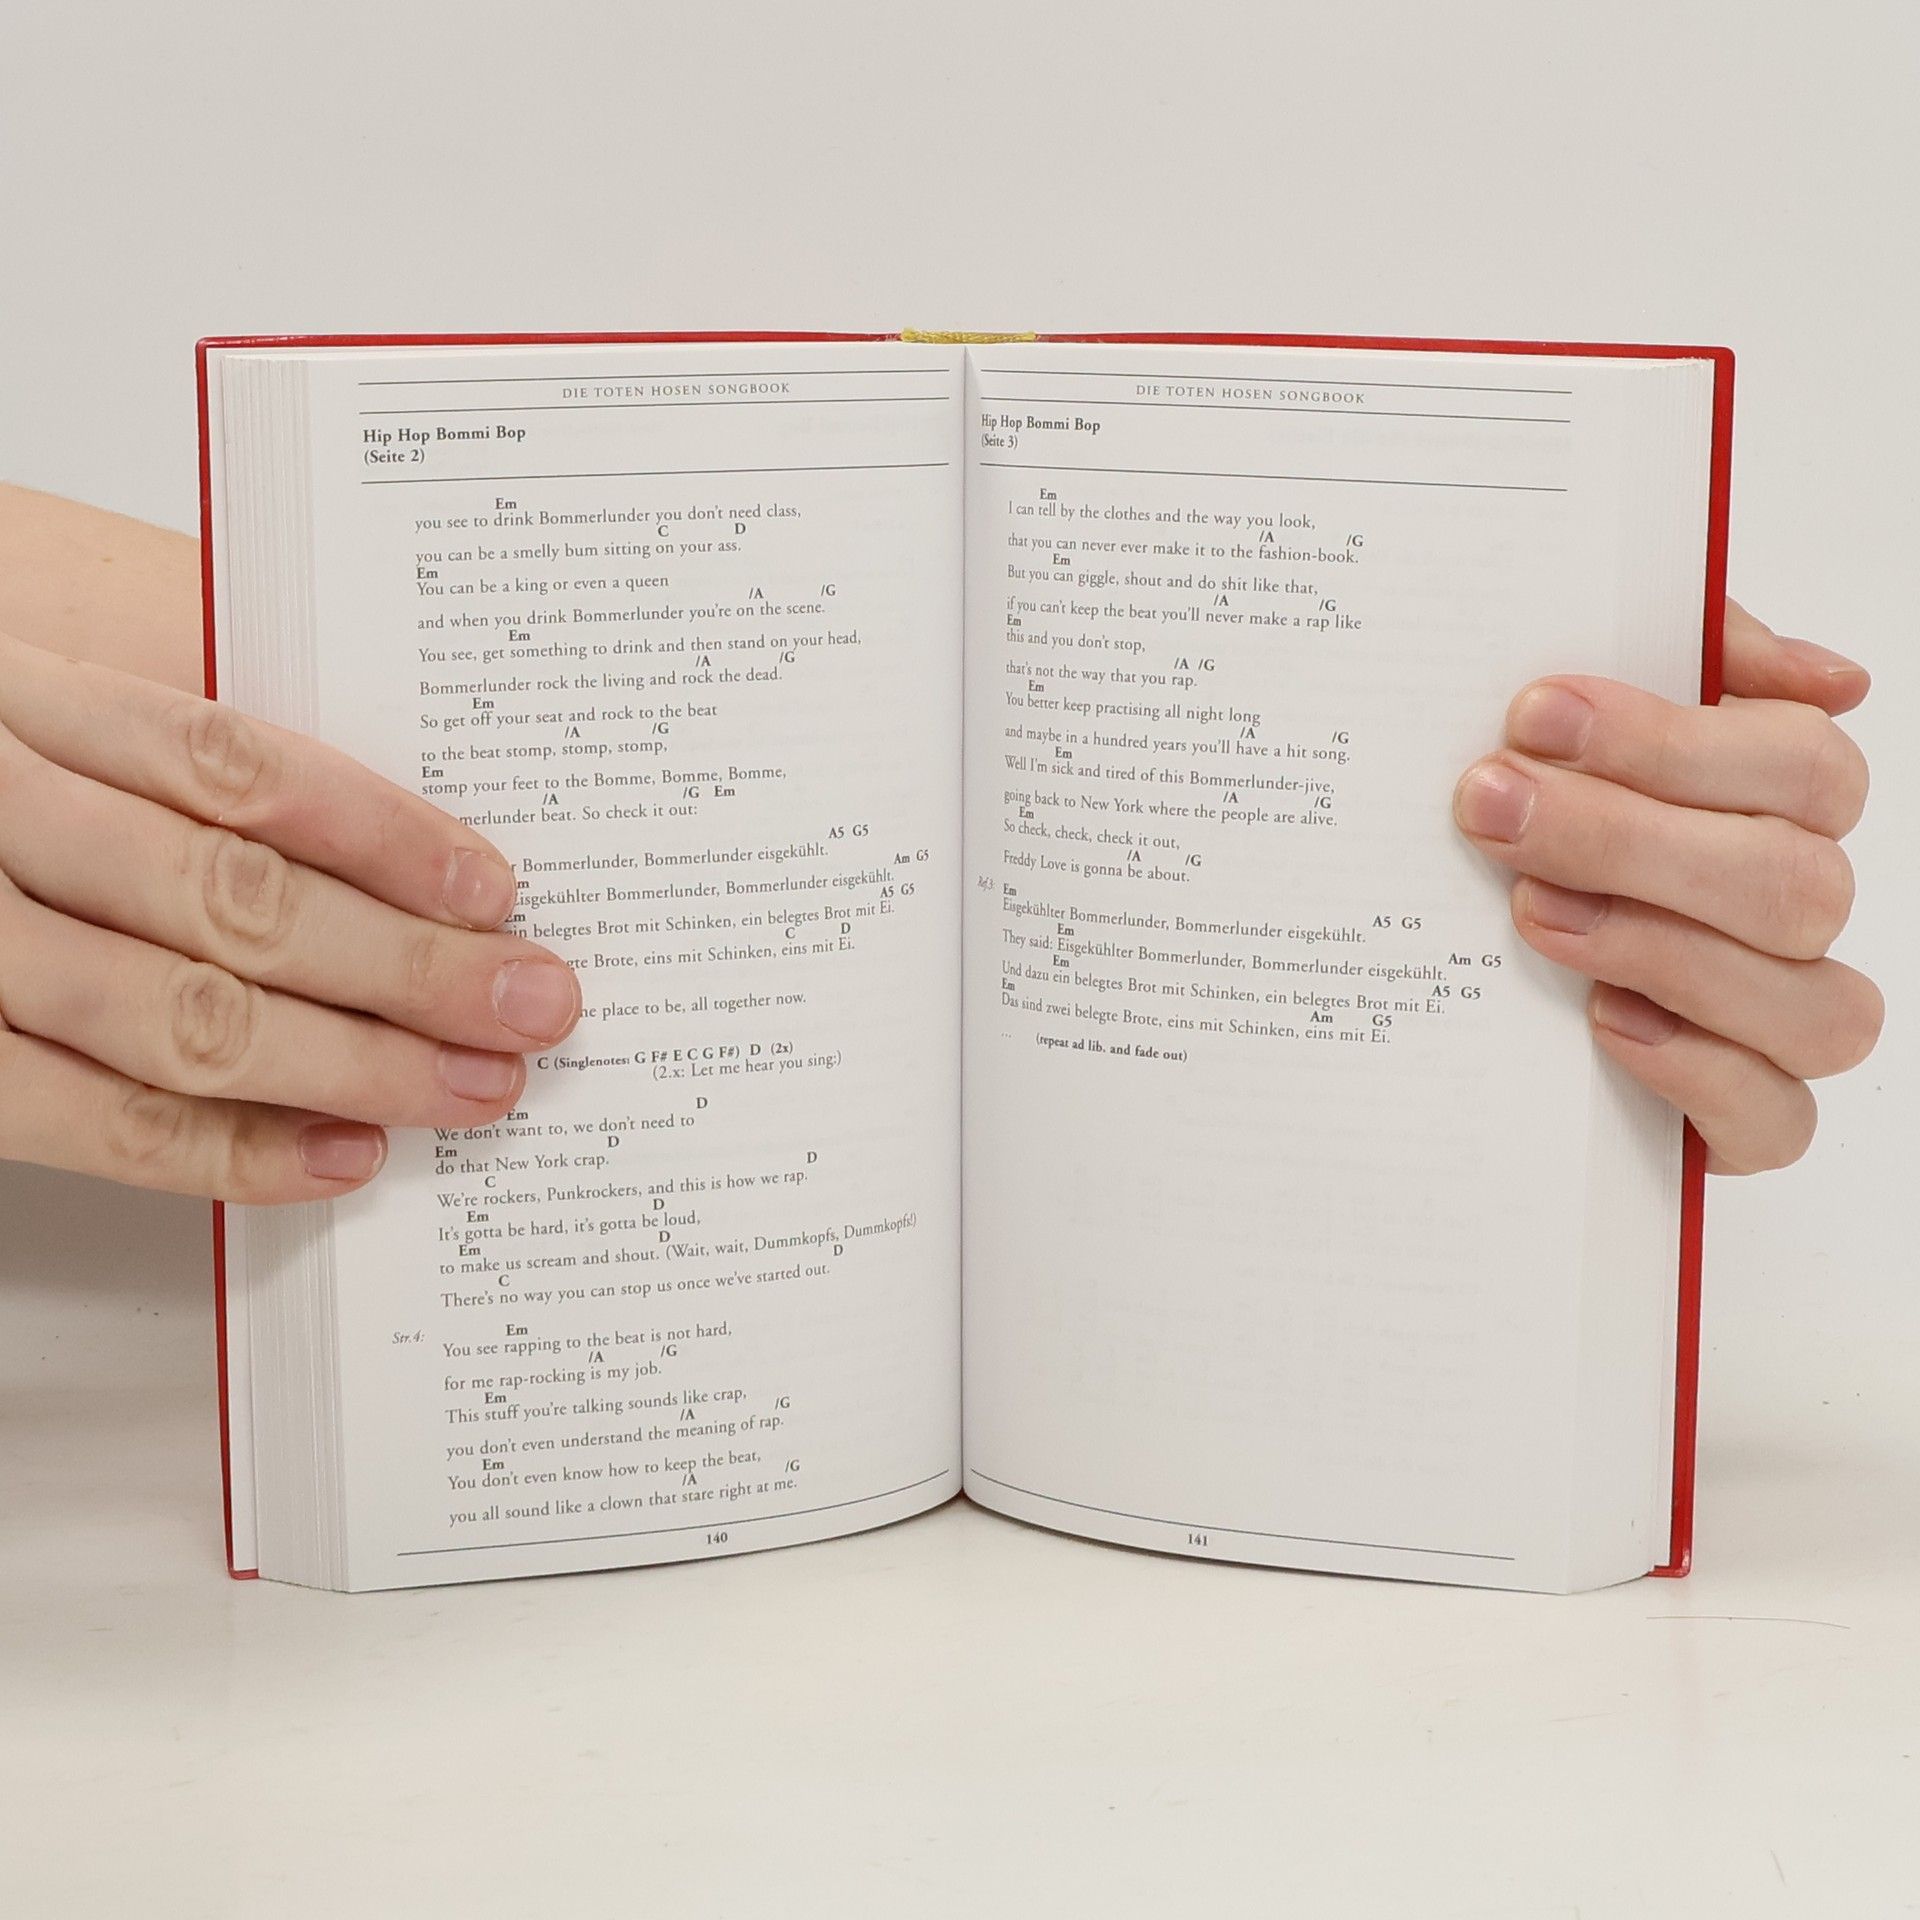 DIE TOTEN HOSEN SONGBOOK
Hip Hop Bommi Bop
(Seite 2)
Em
you see to drink Bommerlunder you don't need class,
C D
you can be a smelly bum sitting on your ass.
Em
You can be a king or even a queen
/A /G
and when you drink Bommerlunder you're on the scene.
Em
You see, get something to drink and then stand on your head,
/A /G
Bommerlunder rock the living and rock the dead.
Em
So get off your seat and rock to the beat
/A /G
to the beat stomp, stomp, stomp,
Em
stomp your feet to the Bomme, Bomme, Bomme,
/A /G Em
merlunder beat. So check it out:
A5 G5
r Bommerlunder, Bommerlunder eisgekühlt.
m Am G5
Eisgekühlter Bommerlunder, Bommerlunder eisgekühlt.
Em A5 G5
in belegtes Brot mit Schinken, ein belegtes Brot mit Ei.
C D
gte Brote, eins mit Schinken, eins mit Ei.
he place to be, all together now.
C (Singlenotes: G F# E C G F#) D (2x)
(2.x: Let me hear you sing:)
Em D
We don't want to, we don't need to
Em D
do that New York crap.
C D
We're rockers, Punkrockers, and this is how we rap.
Em D
It's gotta be hard, it's gotta be loud,
Em D
to make us scream and shout. (Wait, wait, Dummkopfs, Dummkopfs!)
C D
There's no way you can stop us once we've started out.
Str.4:
Em
You see rapping to the beat is not hard,
/A /G
for me rap-rocking is my job.
Em
This stuff you're talking sounds like crap,
/A /G
you don't even understand the meaning of rap.
Em
You don't even know how to keep the beat,
/A /G
you all sound like a clown that stare right at me.
140
DIE TOTEN HOSEN SONGBOOK
Hip Hop Bommi Bop
(Seite 3)
Em
I can tell by the clothes and the way you look,
/A /G
that you can never ever make it to the fashion-book.
Em
But you can giggle, shout and do shit like that,
/A /G
if you can't keep the beat you'll never make a rap like
Em
this and you don't stop,
/A /G
that's not the way that you rap.
Em
You better keep practising all night long
/A /G
and maybe in a hundred years you'll have a hit song.
Em
Well I'm sick and tired of this Bommerlunder-jive,
/A /G
going back to New York where the people are alive.
Em
So check, check, check it out,
/A /G
Freddy Love is gonna be about.
Ref.3:
Em A5 G5
Eisgekühlter Bommerlunder, Bommerlunder eisgekühlt.
Em Am G5
They said: Eisgekühlter Bommerlunder, Bommerlunder eisgekühlt.
Em A5 G5
Und dazu ein belegtes Brot mit Schinken, ein belegtes Brot mit Ei.
Em Am G5
Das sind zwei belegte Brote, eins mit Schinken, eins mit Ei.
... (repeat ad lib. and fade out)
141